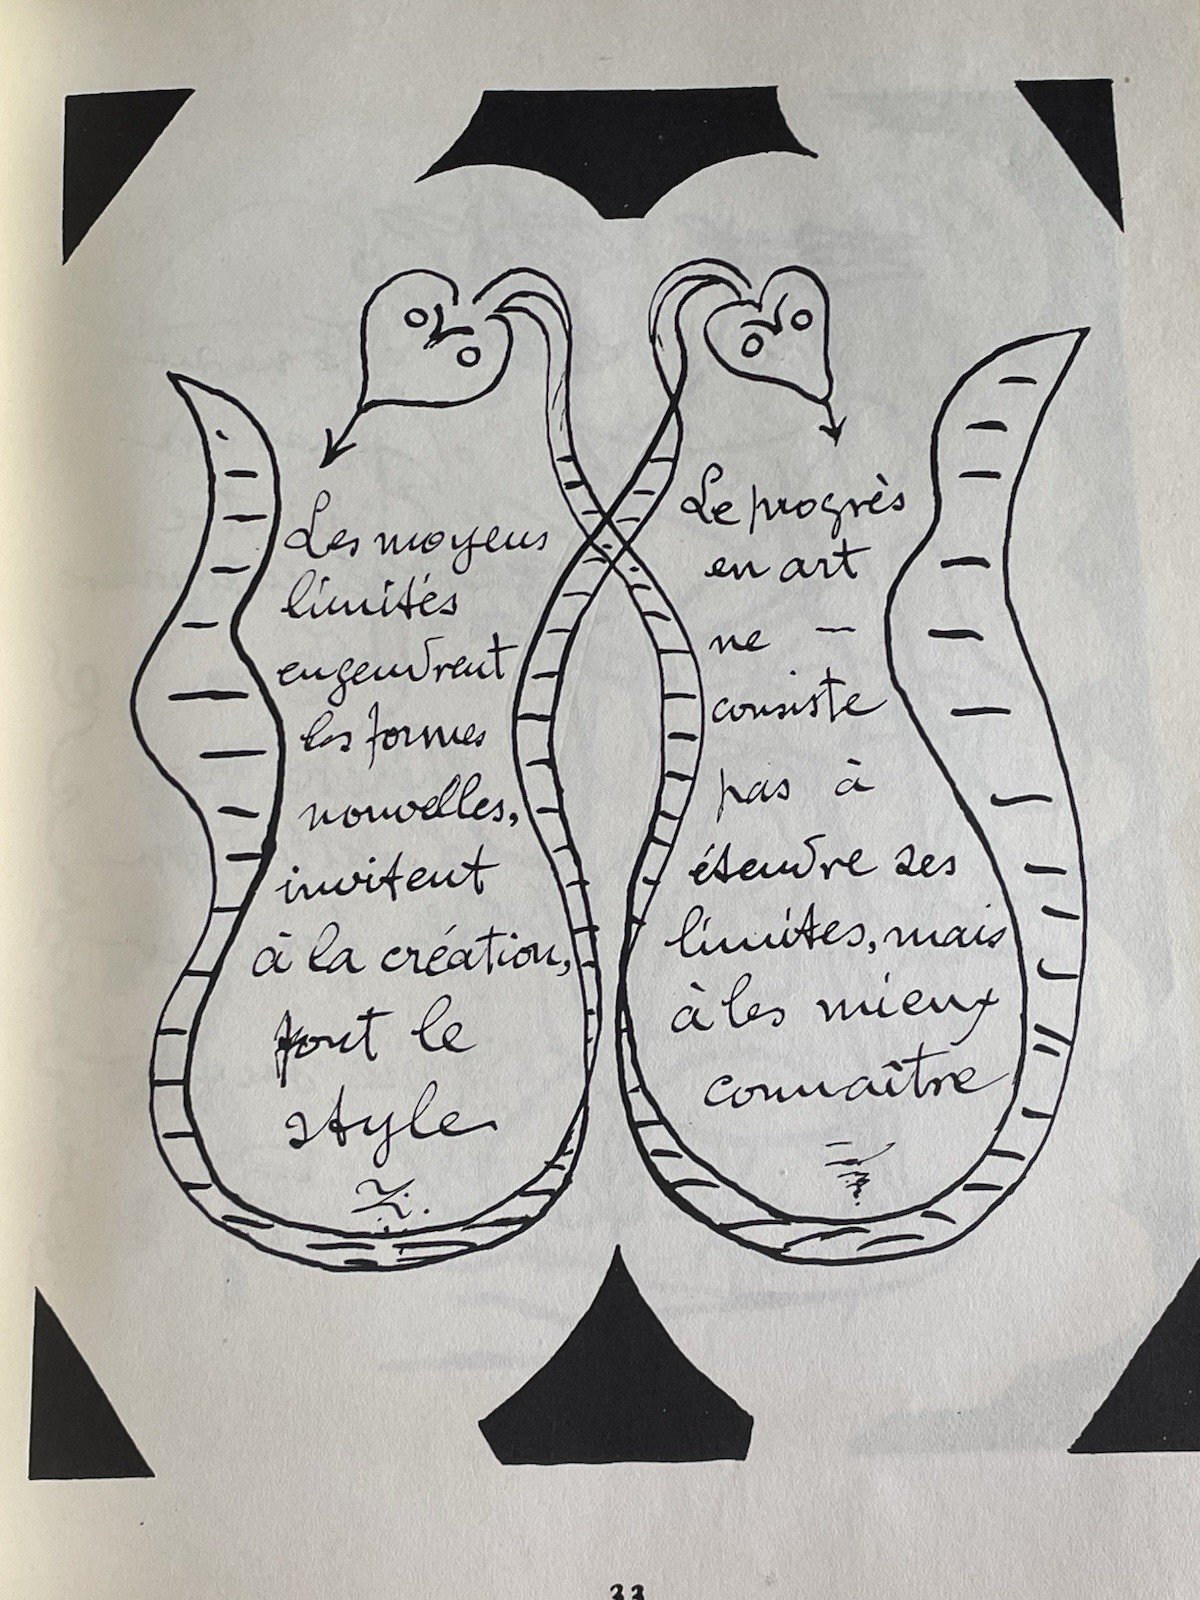 Les moyens
limités
engendrent
les formes
nouvelles,
invitent
à la création,
font le
style
Le progrès
en art
ne —
consiste
pas à
étendre ses
limites, mais
à les mieux
connaître
33